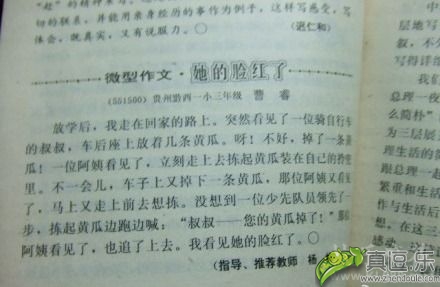 起”的精神来写。
切的联系,并能用亲身经历的事作为例子,这样写感受,写
体会,既真实,又有说服力。〇
(迟仁和)
微型作文·她的脸红了
(551500)贵州黔西一小三年级 曹睿
放学后,我走在回家的路上。突然看见了一位骑自行车
的叔叔,车后座上放着几条黄瓜。呀!不好,掉了一条黄
瓜!一位阿姨看见了,立刻走上去拣起黄瓜装在自己的衿兜
里。不一会儿,车子上又掉下一条黄瓜,那位阿姨又看见
了,马上又走上前去想拣。没想到一位少先队员领先了一
步,拣起黄瓜边跑边喊:“叔叔——您的黄瓜掉了!”那位
阿姨看见了,也追了上去。我看见她的脸红了。〇
(指导、推荐教师 杨
中
层地写
叙,不
写得详细
总理一夜
么简朴”
为三层展
理生活的
跟总理一
繁重和生
活中去
叙。在
点,
真逗.乐
www.zhendoule.com